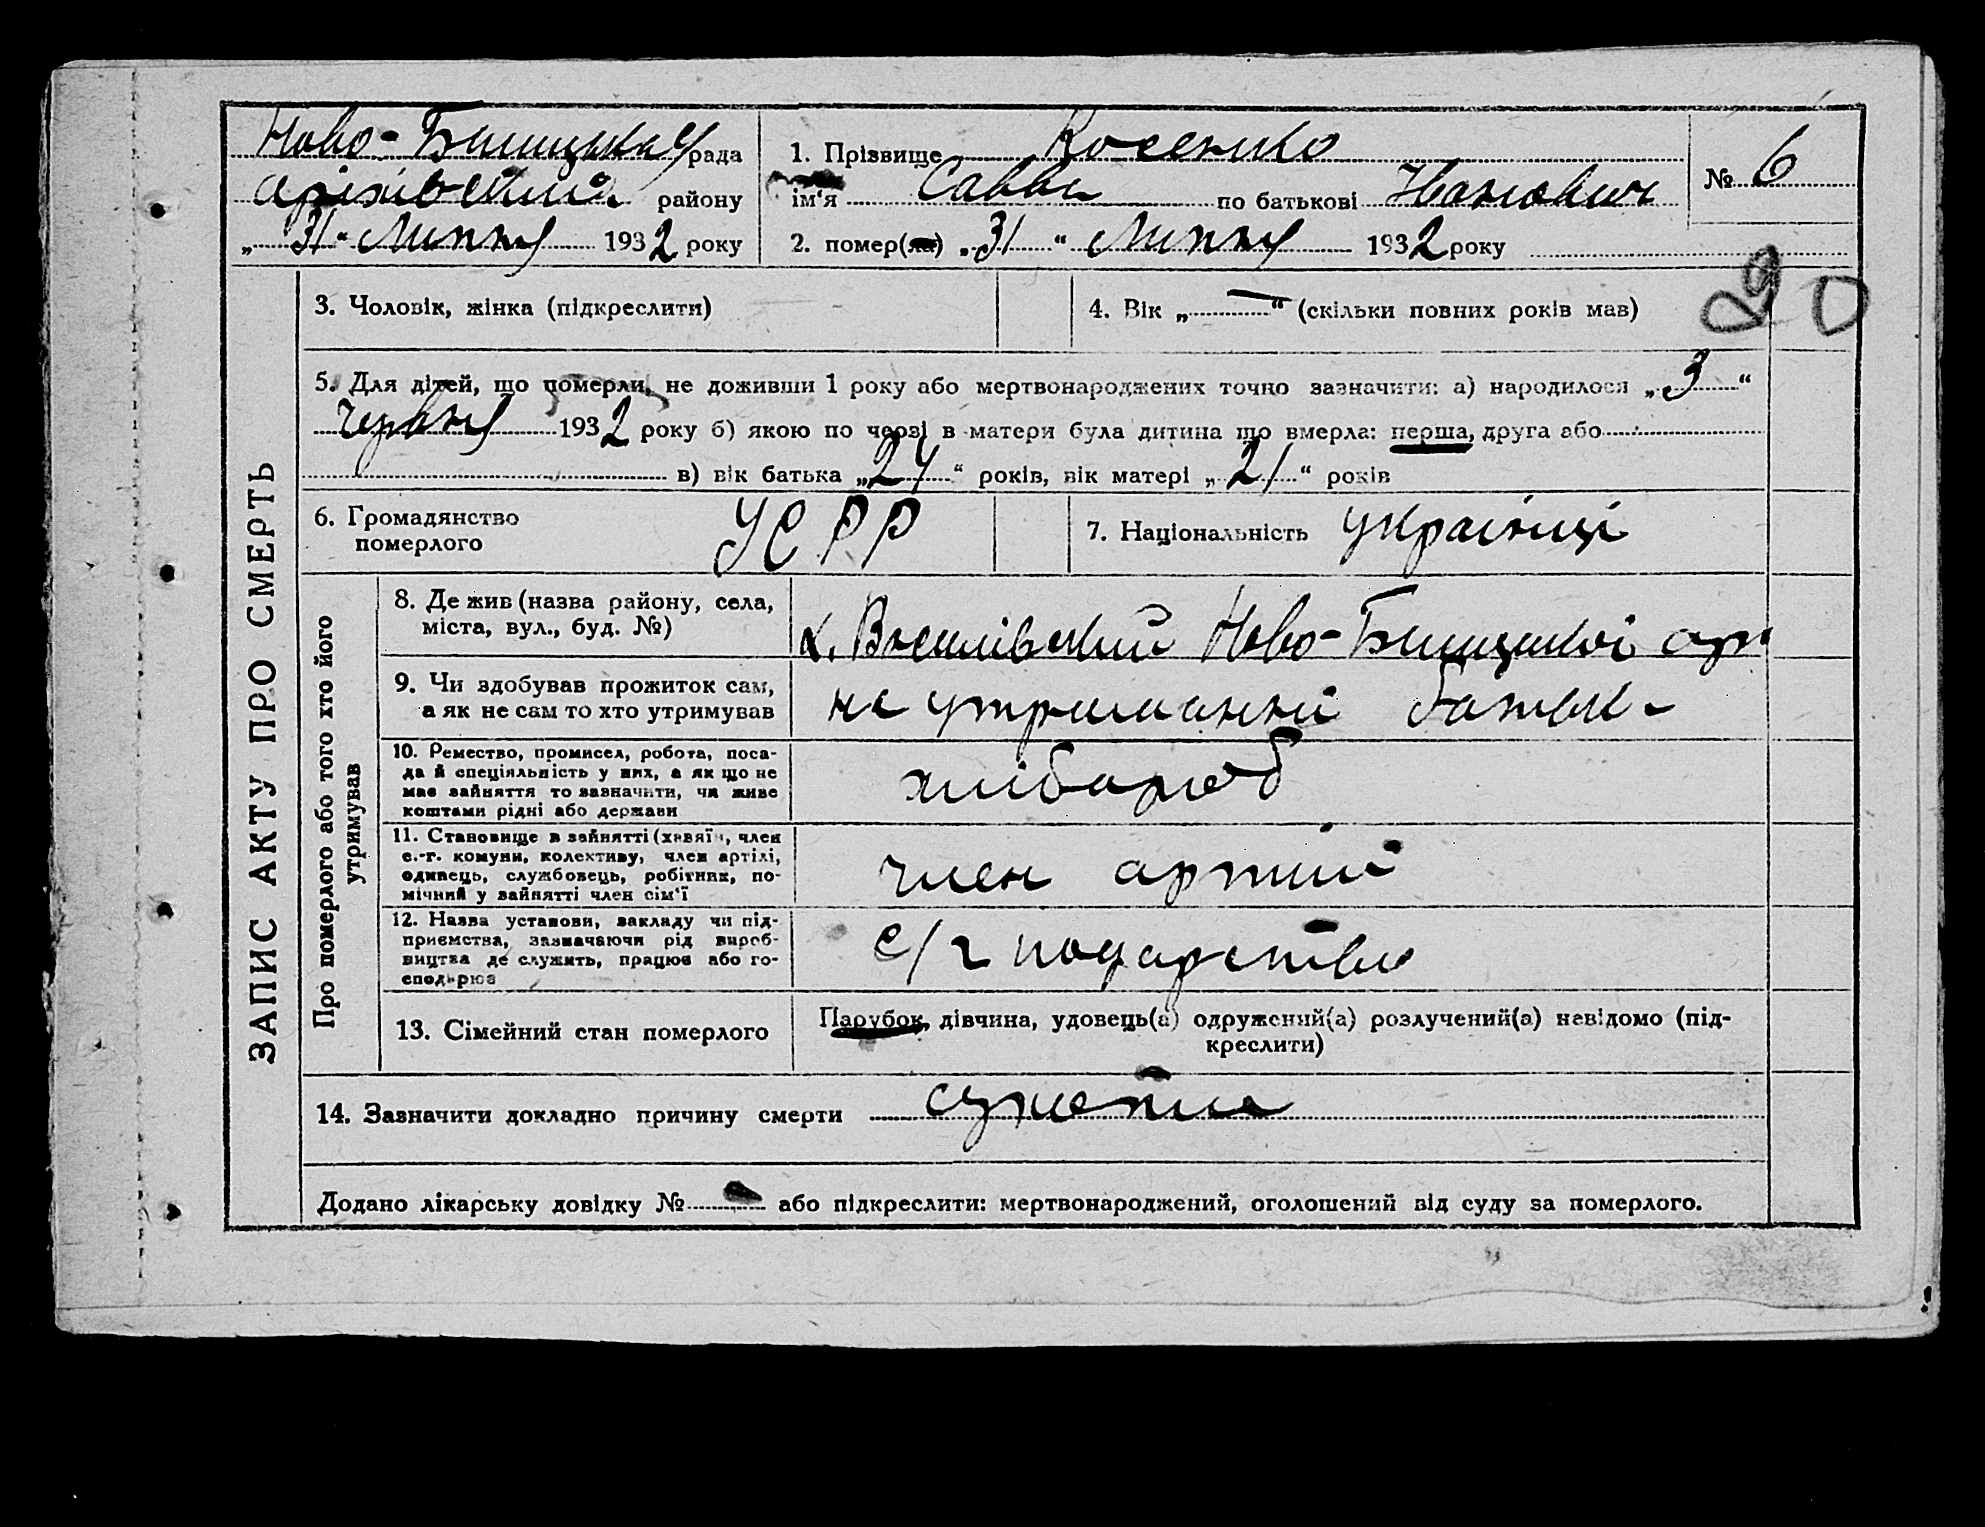 Ново-Билицька рада
Оріхівський району
„31“ Липня 1932 року
1. Прізвище Косенко
ім'я Савва по батькові Иванович
2. помер(ла) „31“ Липня 1932 року
№ 6
3. Чоловік, жінка (підкреслити)
4. Вік „—“ (скільки повних років мав)
5. Для дітей, що померли, не доживши 1 року або мертвонароджених точно зазначити: а) народилося „3“
червня 1932 року б) якою по черзі в матери була дитина що вмерла: перша, друга або
в) вік батька „24“ років, вік матері „21“ років
6. Громадянство
померлого
УСРР
7. Національність українці
ЗАПИС АКТУ ПРО СМЕРТЬ
Про померлого або того хто його
утримував
8. Де жив (назва району, села,
міста, вул., буд. №)
х. Василівський Ново-Билицької
9. Чи здобував прожиток сам,
а як не сам то хто утримував
на утриманні батьк-
10. Ремество, промисел, робота, поса-
да й спеціяльність у них, а як що не
має зайняття то зазначити, чи живе
коштами рідні або держави
хлібороб
11. Становище в зайнятті (хазяїн, член
с.-г. комуни, колективу, член артілі,
одинець, службовець, робітник, по-
мічний у зайнятті член сім'ї
член артілі
12. Назва установи, закладу чи під-
приємства, зазначаючи рід вироб-
ництва де служить, працює або го-
сподарює
с/г
13. Сімейний стан померлого
Парубок, дівчина, удовець(а) одружений(а) розлучений(а) невідомо (під-
креслити)
14. Зазначити докладно причину смерти
Додано лікарську довідку № або підкреслити: мертвонароджений, оголошений від суду за померлого.